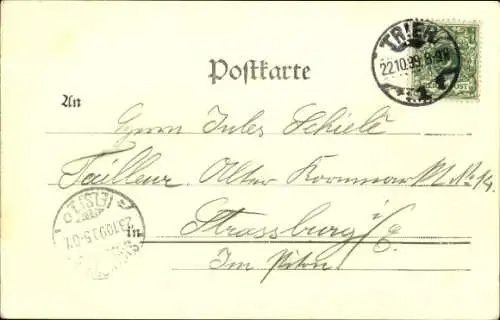 TRIER
22.10.99. 8-9N
1
Postkarte
An
Herrn Jules Schielé
Tailleur Alter Kornmarkt No 14.
in Strassburg i/E.
Im
23.10.99.5-6V